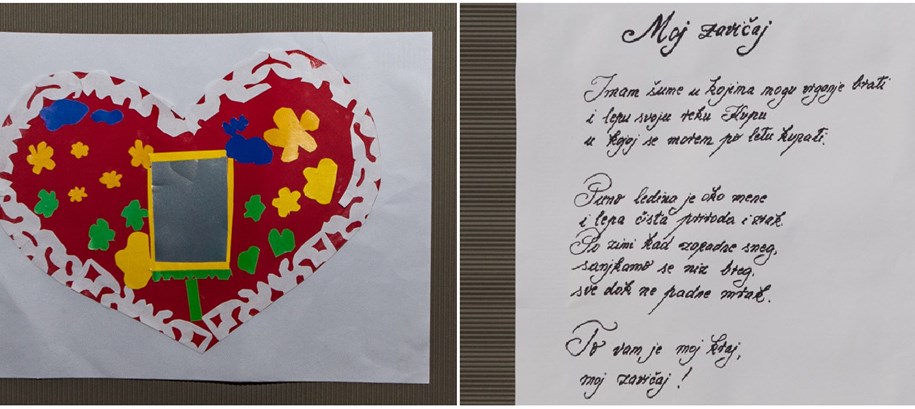 Moj zavičaj
Imam šume u kojima mogu vrganje brati
i lepu svoju reku Kupu
u kojoj se morem po letu kupati.
Puno ledina je oko mene
i lepa čista priroda i zrak
Po zimi kad zapadne sneg,
sanjkamo se niz breg.
sve dok ne padne mrak.
To vam je moj kraj,
moj zavičaj!